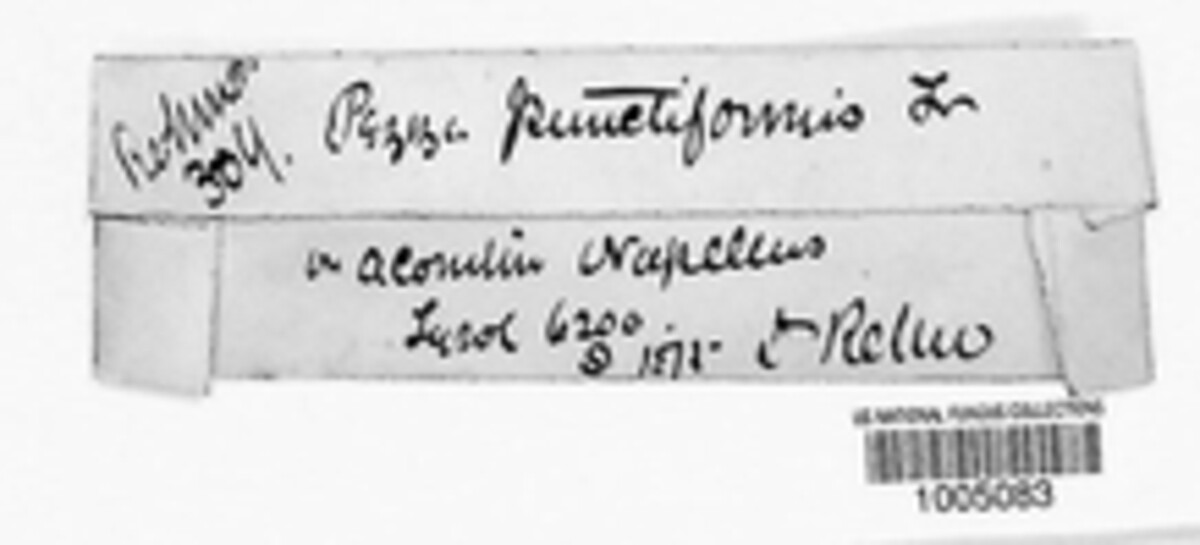 Rehm
304.
Peziza punctiformis Fr
on aconitum Napellus
Tyrol 6200
8 1875 Dr Rehm
US NATIONAL FUNGUS COLLECTIONS
1005083